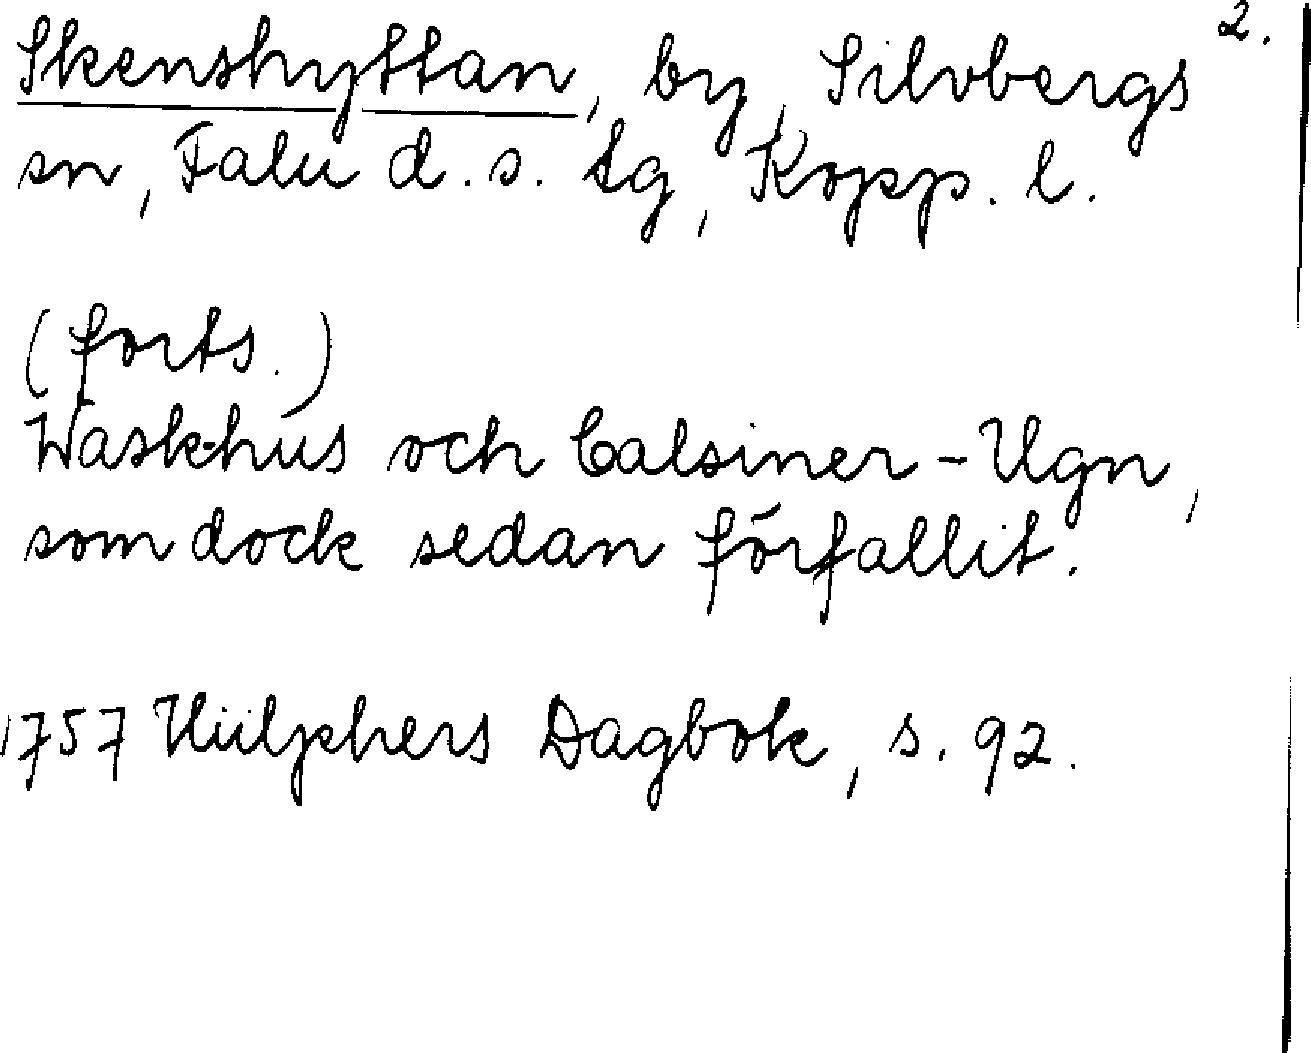 2.
Skenshyttan, by, Silvbergs
sn, Falu d. s. tg, Kopp. l.
(forts.)
Wask-hus och Calsiner-Ugn,
som dock sedan förfallit.
1757 Hülphers Dagbok, s. 92.